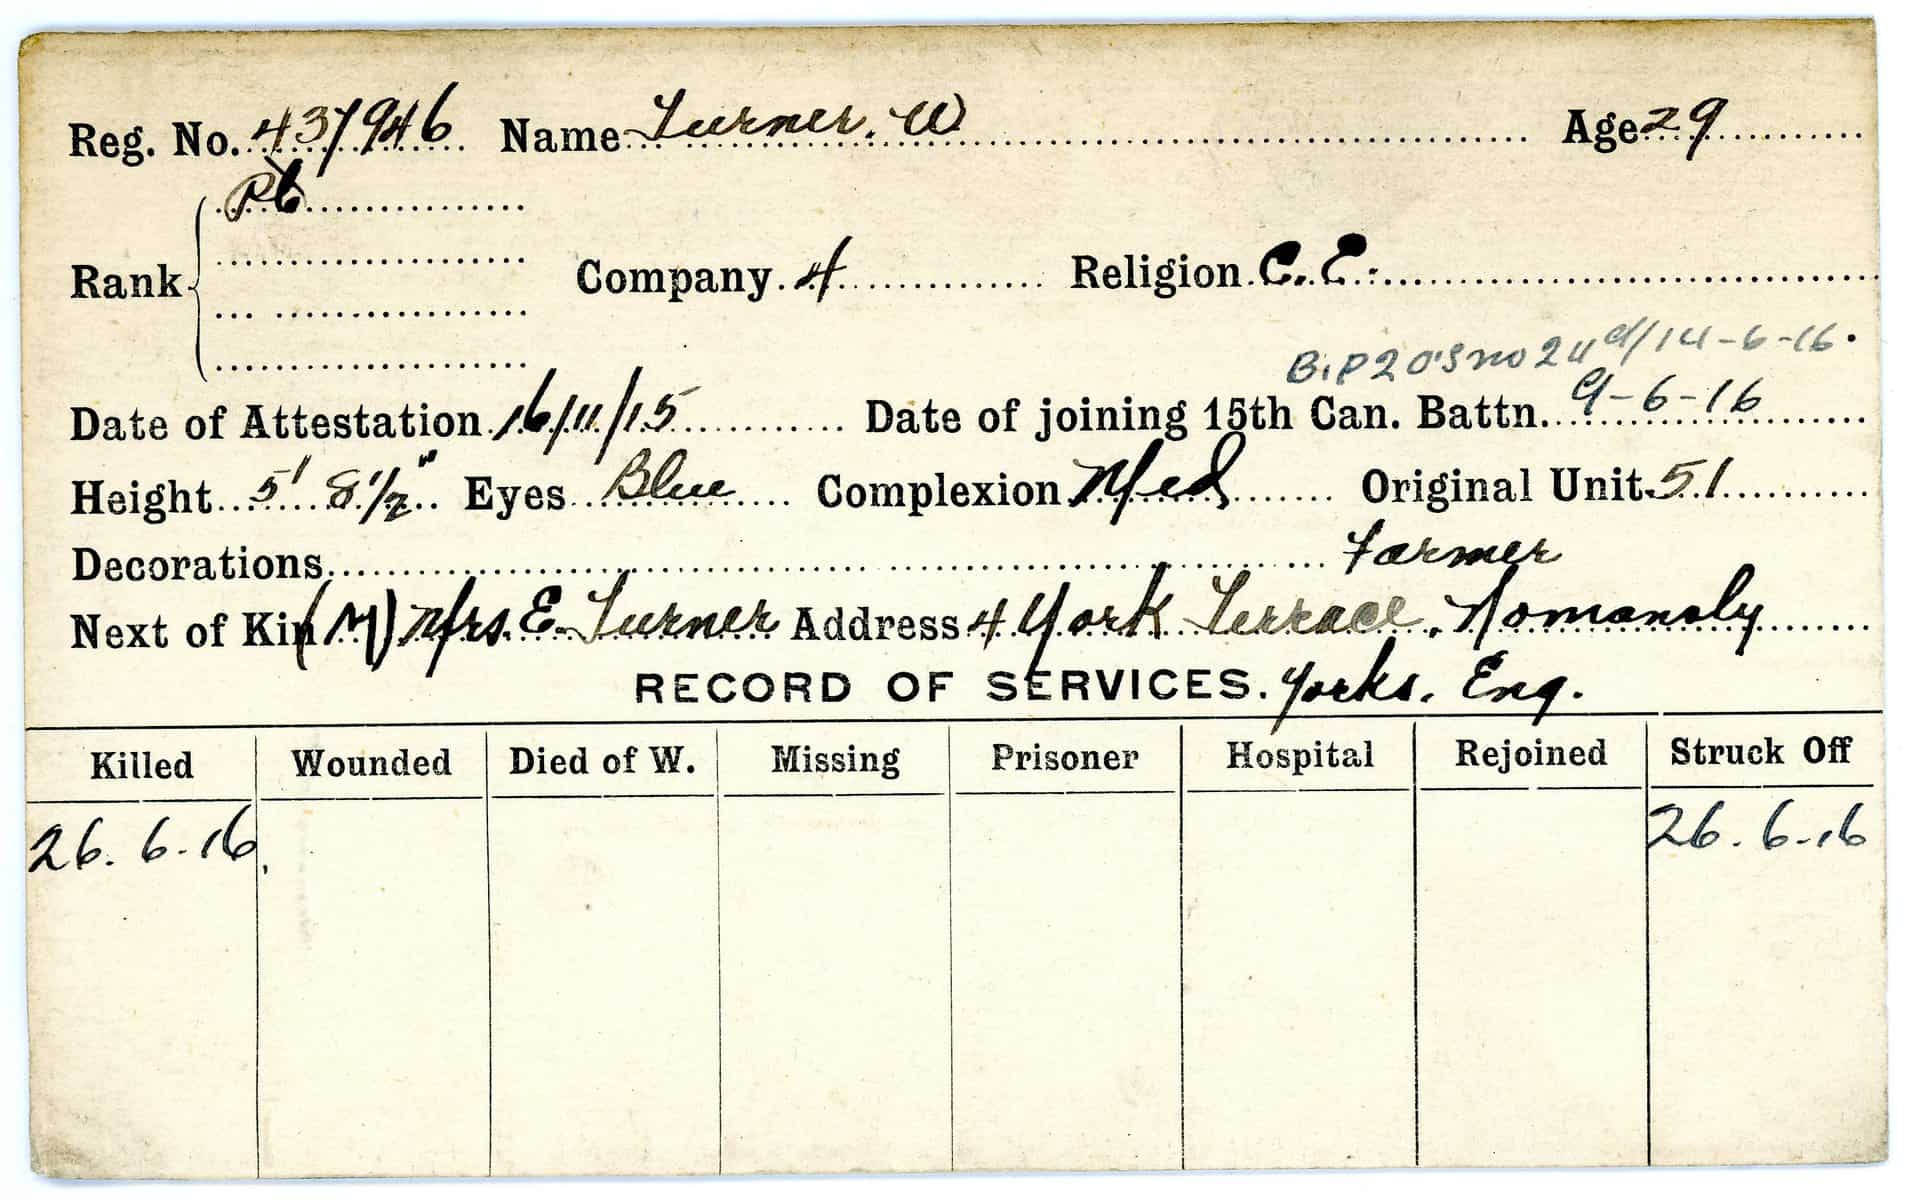 Reg. No. 437946 Name Turner. W Age 29
Pte
Rank Company 4 Religion C. E.
14-6-16.
Date of Attestation 16/11/15 Date of joining 15th Can. Battn. 9-6-16
Height 5' 8 1/2" Eyes Blue Complexion Med Original Unit 51
Decorations Farmer
Next of Kin (M) Mrs. E. Turner Address 4 York Terrace,
RECORD OF SERVICES. Yorks. Eng.
Killed Wounded Died of W. Missing Prisoner Hospital Rejoined Struck Off
26. 6-16 26. 6-16